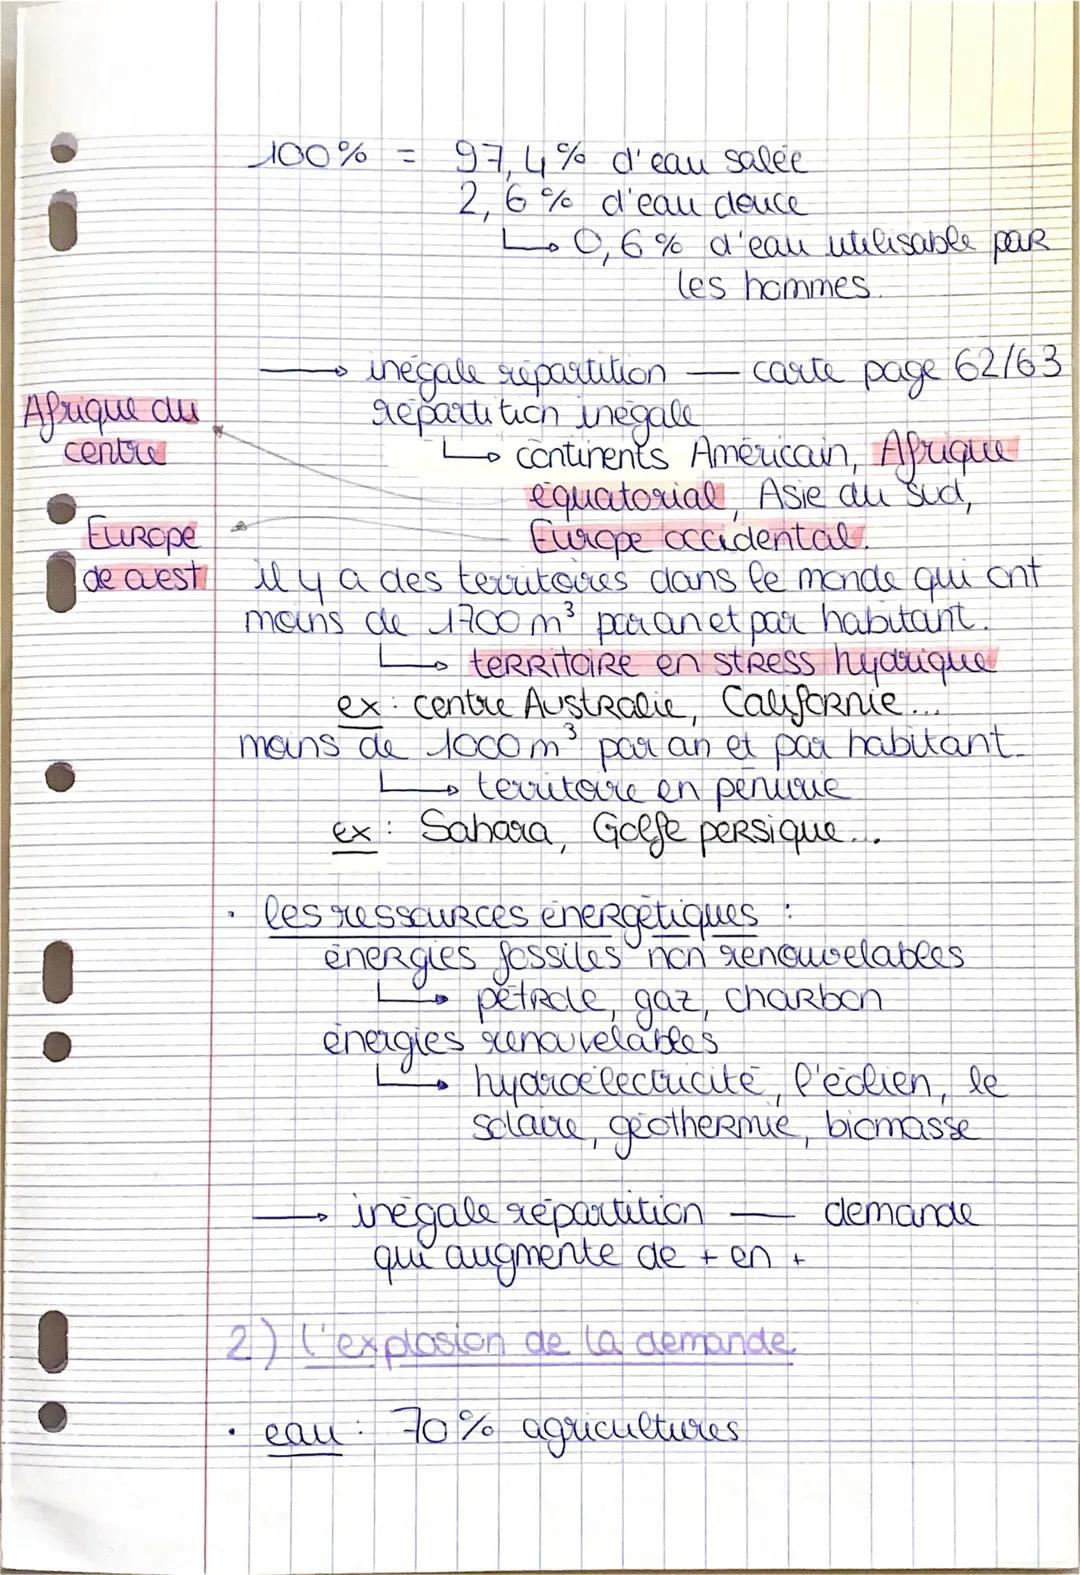 100% = 97,4% d'eau salée
2,6% d'eau douce
↳ 0,6% d'eau utilisable par
les hommes.
→ inégale répartition — carte page 62/63
répartition inégale
↳ continents Américain, Afrique
équatorial, Asie du sud,
Europe occidental.
Afrique du
centre
Europe
de ouest
il y a des territoires dans le monde qui ont
moins de 1700 m³ par an et par habitant.
↳ territoire en stress hydrique
ex : centre Australie, Californie...
moins de 1000 m³ par an et par habitant.
↳ territoire en pénurie
ex : Sahara, Golfe persique...
• les ressources énergétiques :
énergies fossiles non renouvelables
↳ pétrole, gaz, charbon
énergies renouvelables
↳ hydroélectricité, l'éolien, le
solaire, géothermie, biomasse
→ inégale répartition — demande
qui augmente de + en +
2) L'explosion de la demande
• eau : 70% agricultures